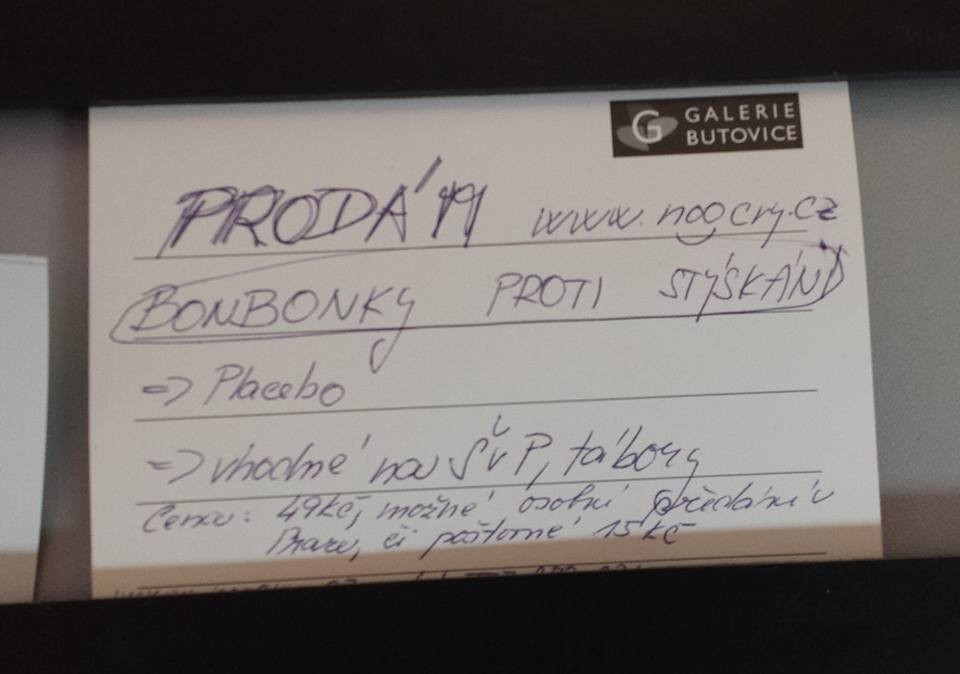 G GALERIE
BUTOVICE
PRODÁM www.noocry.cz
BONBONKY PROTI STÝSKÁNÍ
=> Placebo
=> vhodné na ŠvP, tábory
Cena: 49Kč, možné osobní předání v
Praze, či poštovné 15Kč